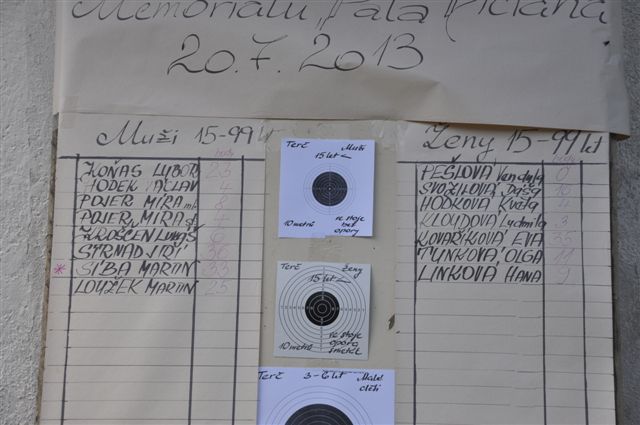 Memoriálu „Pala
20.7. 2013
Muži 15-99 let
Ženy 15-99 let
body
KOŇAS LUBOR 23
HODEK VÁCLAV 4
POJER MÍRA ml. 8
POJER MÍRA st. 4
ZROŠČEN LUKÁŠ 6
STRNAD JIŘÍ
* SIBA MARTIN 33
LOUŽEK MARTIN 25
Terč Muži
15 let
10 metrů ve stoje
bez
opory
Terč Ženy
15 let
10 metrů ve stoje
opora
Terč 3-6 let Malé
děti
body
PEŠLOVÁ Vendula 0
SVOŽILOVÁ Dáša 10
HODKOVÁ Květa 4
KLOUDOVÁ Ludmila 3
KOVAŘÍKOVÁ EVA
TUNKOVÁ OLGA 11
LINKOVÁ HANA 9